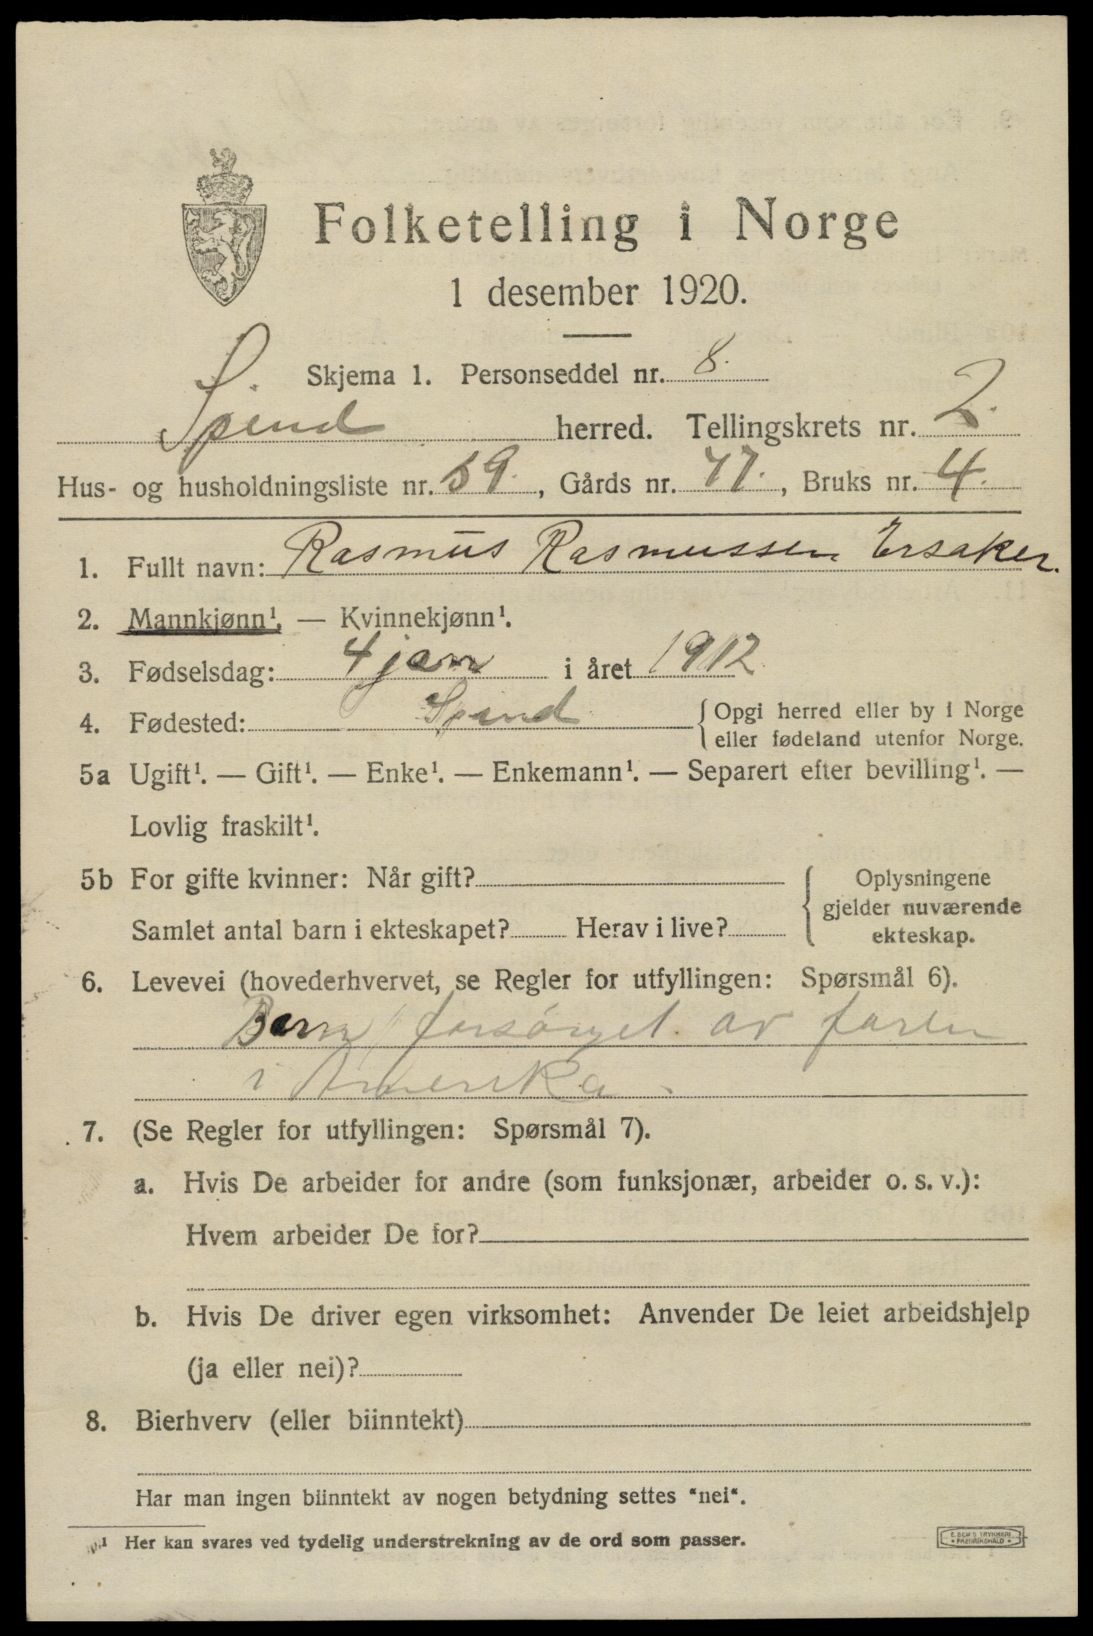 Folketelling i Norge
1 desember 1920.
Skjema 1. Personseddel nr. 8.
Spind herred. Tellingskrets nr. 2.
Hus- og husholdningsliste nr. 59. , Gårds nr. 77. , Bruks nr. 4.
1. Fullt navn: Rasmus Rasmussen Ersaker.
2. Mannkjønn¹. — Kvinnekjønn¹.
3. Fødselsdag: 4 jan i året 1912
4. Fødested: Spind { Opgi herred eller by i Norge
eller fødeland utenfor Norge.
5a Ugift¹. — Gift¹. — Enke¹. — Enkemann¹. — Separert efter bevilling¹. —
Lovlig fraskilt¹.
5b For gifte kvinner: Når gift?
Samlet antal barn i ekteskapet? Herav i live?
{ Oplysningene
gjelder nuværende
ekteskap.
6. Levevei (hovederhvervet, se Regler for utfyllingen: Spørsmål 6).
Barn, forsørget av faren
i Amerika.
7. (Se Regler for utfyllingen: Spørsmål 7).
a. Hvis De arbeider for andre (som funksjonær, arbeider o. s. v.):
Hvem arbeider De for?
b. Hvis De driver egen virksomhet: Anvender De leiet arbeidshjelp
(ja eller nei)?
8. Bierhverv (eller biinntekt)
Har man ingen biinntekt av nogen betydning settes "nei".
¹ Her kan svares ved tydelig understrekning av de ord som passer.